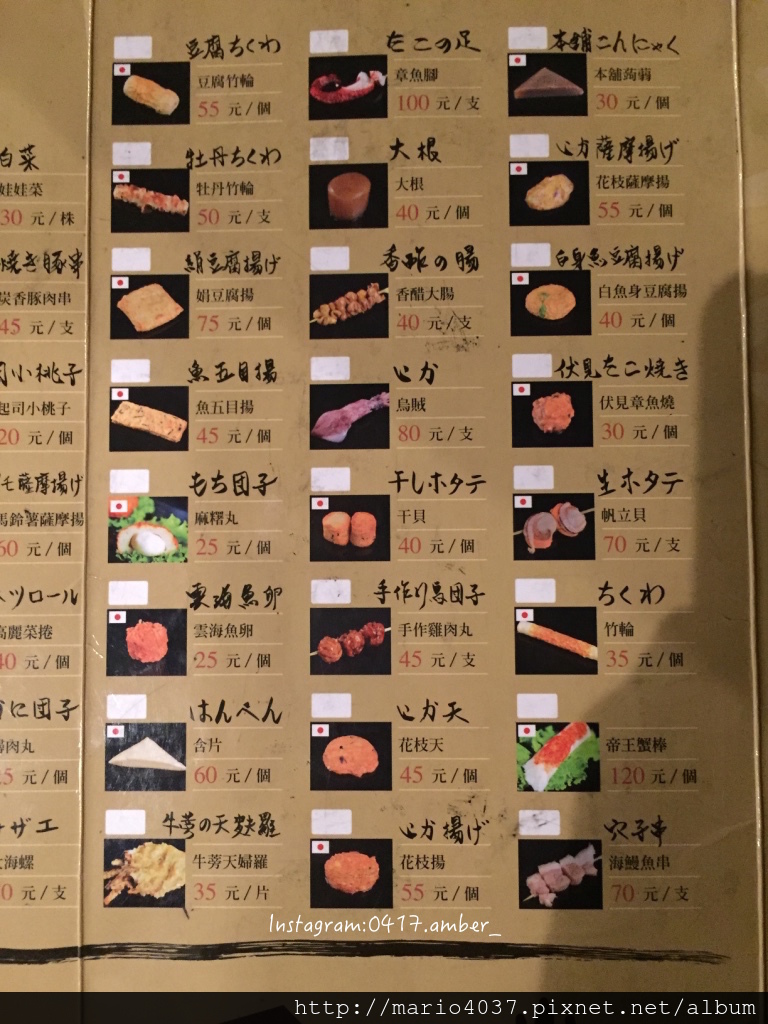 白菜
娃娃菜
30 元/株
焼き豚串
炭香豚肉串
45 元/支
小桃子
起司小桃子
20 元/個
薩摩揚げ
馬鈴薯薩摩揚
60 元/個
ツロール
高麗菜捲
40 元/個
に団子
肉丸
5 元/個
ザエ
大海螺
0 元/支
豆腐ちくわ
豆腐竹輪
55 元/個
牡丹ちくわ
牡丹竹輪
50 元/支
絹豆腐揚げ
娟豆腐揚
75 元/個
魚五目揚
魚五目揚
45 元/個
もち団子
麻糬丸
25 元/個
雲海魚卵
雲海魚卵
25 元/個
はんぺん
含片
60 元/個
牛蒡の天麩羅
牛蒡天婦羅
35 元/片
たこの足
章魚腳
100 元/支
大根
大根
40 元/個
香酢の腸
香醋大腸
40 元/支
いか
烏賊
80 元/支
干しホタテ
干貝
40 元/個
手作り鳥団子
手作雞肉丸
45 元/支
いか天
花枝天
45 元/個
いか揚げ
花枝揚
55 元/個
本舗こんにゃく
本舖蒟蒻
30 元/個
いか薩摩揚げ
花枝薩摩揚
55 元/個
白身魚豆腐揚げ
白魚身豆腐揚
40 元/個
伏見たこ焼き
伏見章魚燒
30 元/個
生ホタテ
帆立貝
70 元/支
ちくわ
竹輪
35 元/個
帝王蟹棒
120 元/個
穴子串
海鰻魚串
70 元/支
Instagram:0417.amber_
http://mario4037.pixnet.net/album